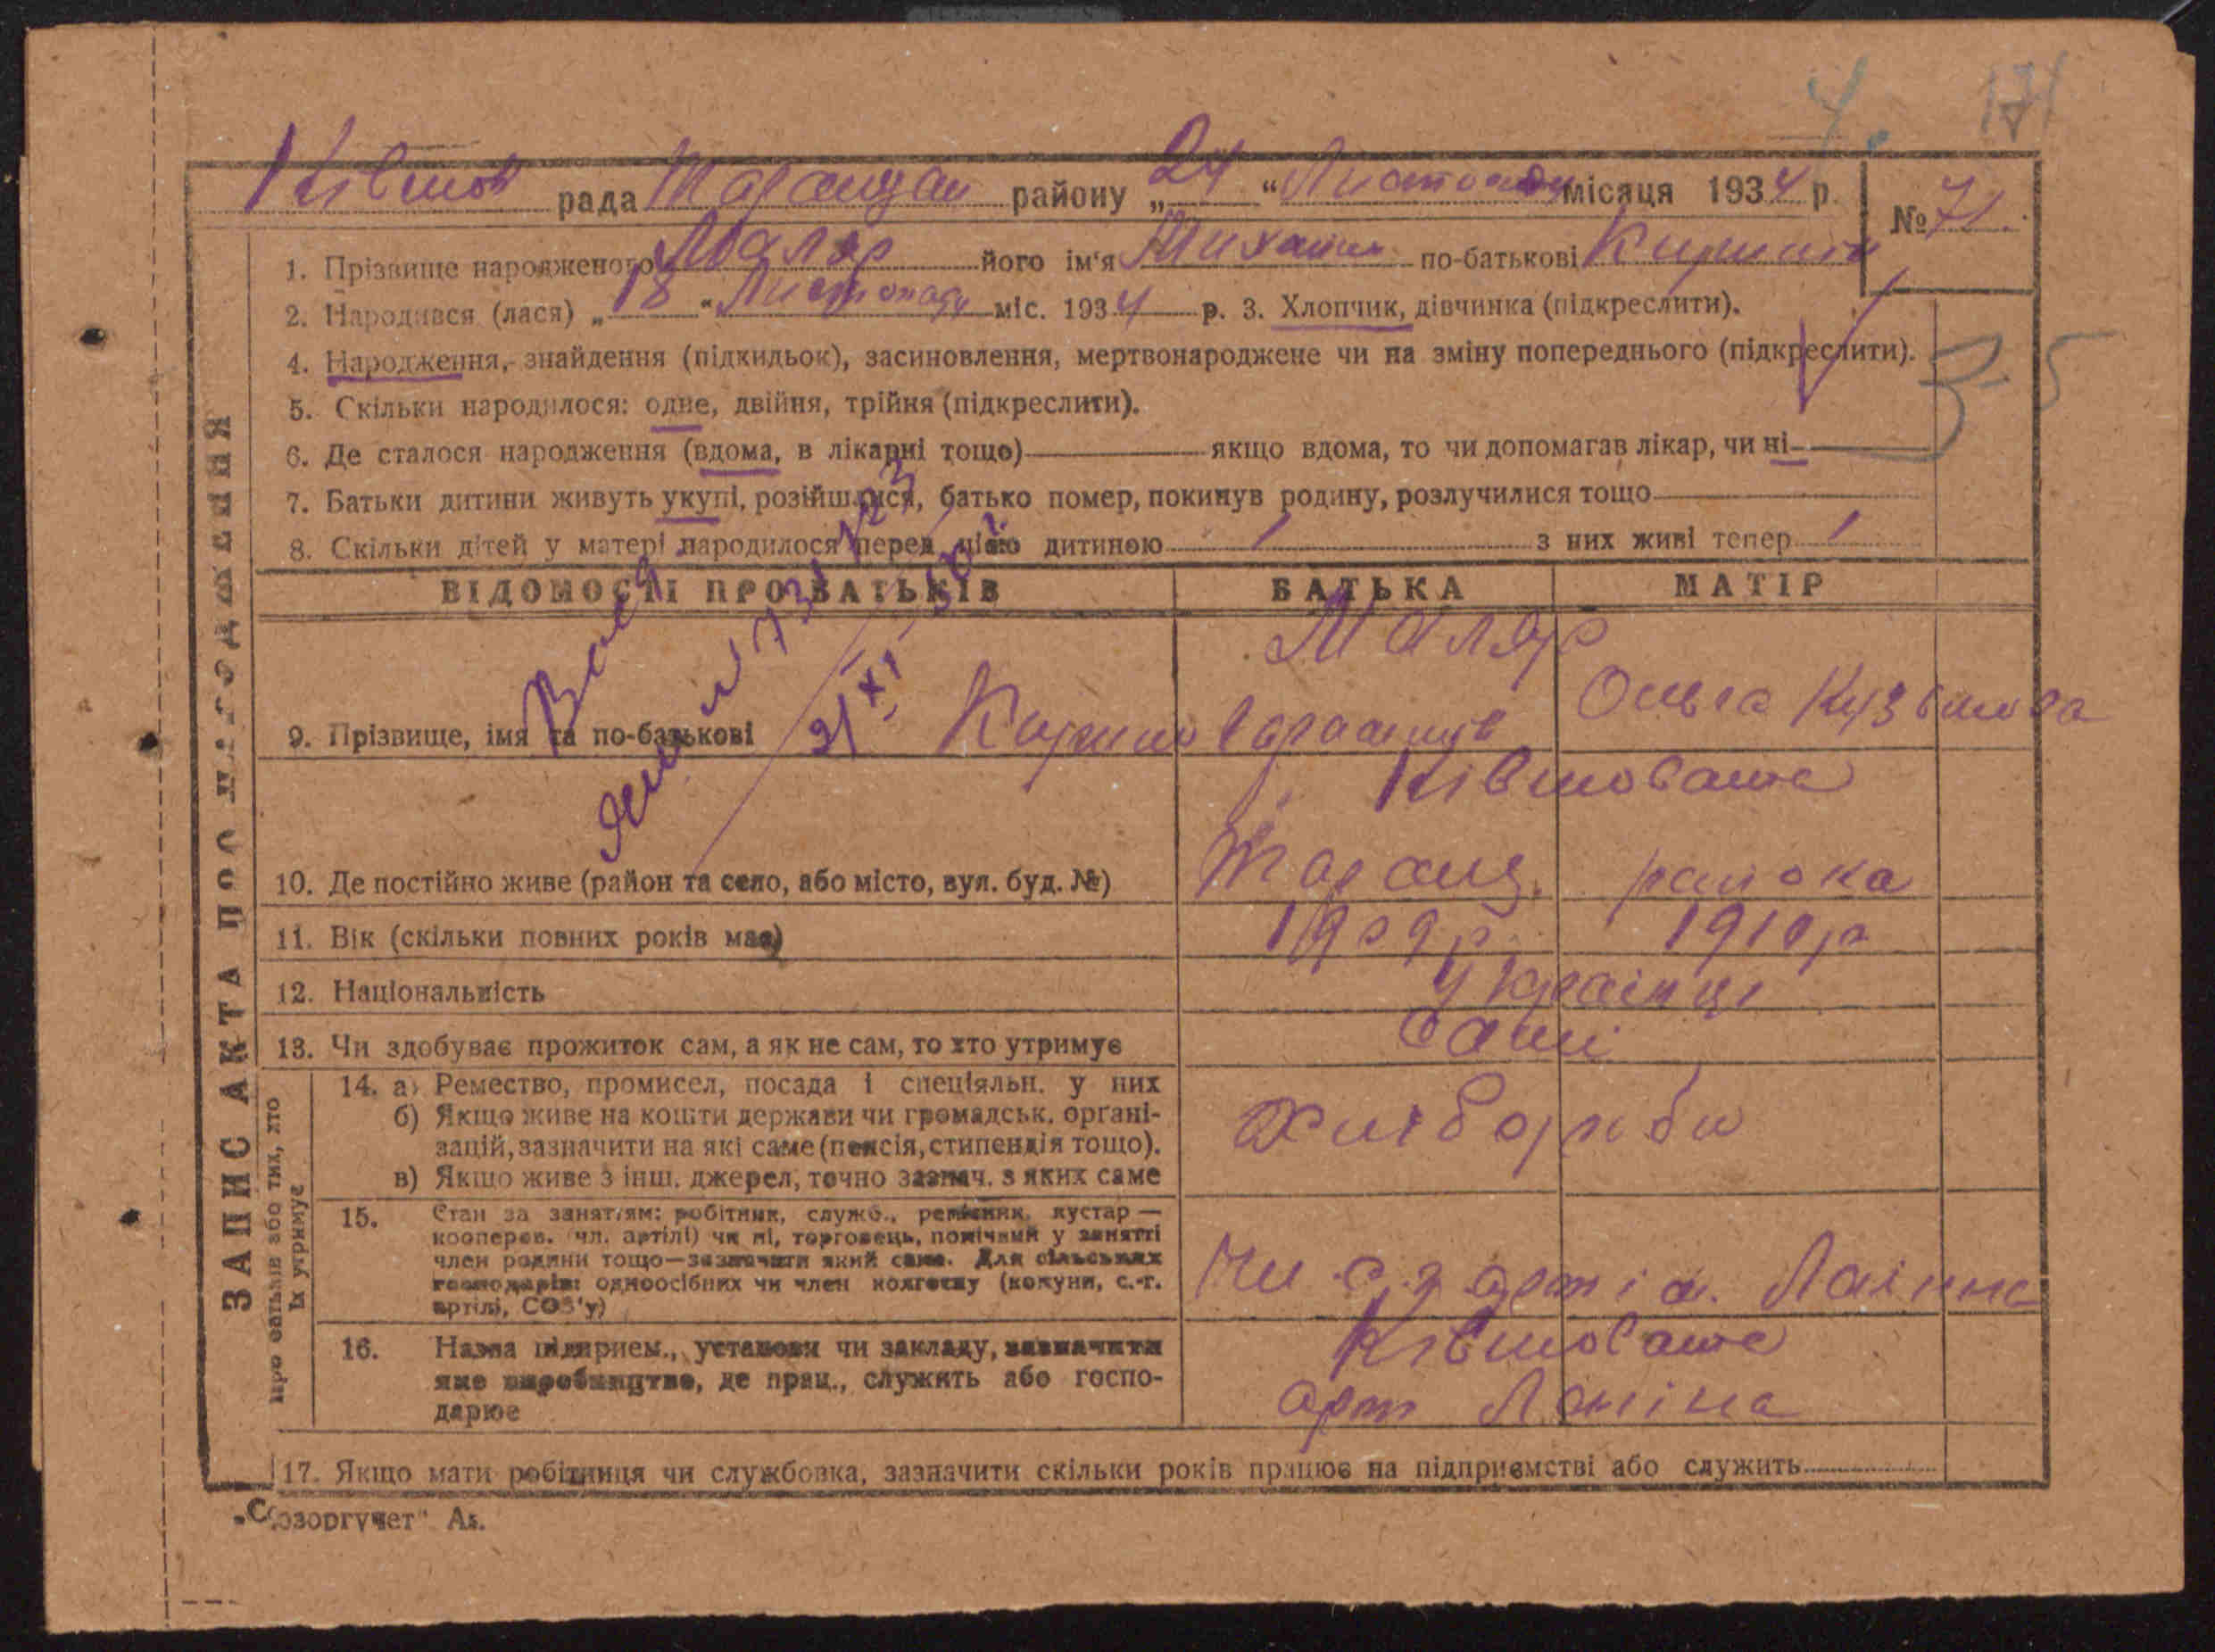 4. 171
Ківшов рада Таращан району „24“ Листопаду місяця 1934 р. № 71.
1. Прізвище народженого Маляр його ім'я Михайло по-батькові Кирилів
2. Народився (лася) „18“ Листопаду міс. 1934 р. 3. Хлопчик, дівчинка (підкреслити).
4. Народження, знайдення (підкидьок), засиновлення, мертвонароджене чи на зміну попереднього (підкреслити).
3-5
5. Скільки народилося: одне, двійня, трійня (підкреслити).
6. Де сталося народження (вдома, в лікарні тощо) якщо вдома, то чи допомагав лікар, чи ні
7. Батьки дитини живуть укупі, розійшлися, батько помер, покинув родину, розлучилися тощо
8. Скільки дітей у матері народилося перед цією дитиною 1 з них живі тепер 1
ВІДОМОСТІ ПРО БАТЬКІВ БАТЬКА МАТІР
Маляр
9. Прізвище, імя та по-батькові Кирило Ольга Кузьмова
Ківшовате
10. Де постійно живе (район та село, або місто, вул. буд. №) Таращ. района
11. Вік (скільки повних років має) 1909р 1910р
12. Національність Українці
13. Чи здобуває прожиток сам, а як не сам, то хто утримує Самі
14. а) Ремество, промисел, посада і спеціяльн. у них
б) Якщо живе на кошти держави чи громадськ. органі-
зацій, зазначити на які саме (пенсія, стипендія тощо).
в) Якщо живе з інш. джерел, точно зазнач. з яких саме
Хлібороби
15. Стан за заняттям: робітник, служб., ремісник, кустар —
кооперов. (чл. артілі) чи ні, торговець, помічний у занятті
член родини тощо—зазначити який саме. Для сільських
господарів: одноосібних чи член колгоспу (комуни, с.-г.
артілі, СОЗ'у)
Чл с.г. арті л. Лєніна
16. Назва підприєм., установи чи закладу, зазначити
яке виробництво, де прац., служить або госпо-
дарює
Ківшовате
арт Лєніна
17. Якщо мати робітниця чи службовка, зазначити скільки років працює на підприємстві або служить
ЗАПИС АКТА ПРО НАРОДЖЕННЯ
Про батьків або тих, хто
їх утримує
21/XI
„Союзоргучет" Аз.